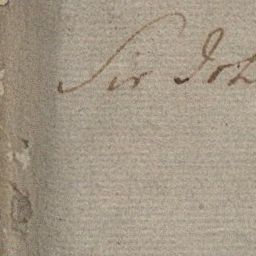 Sir Joh